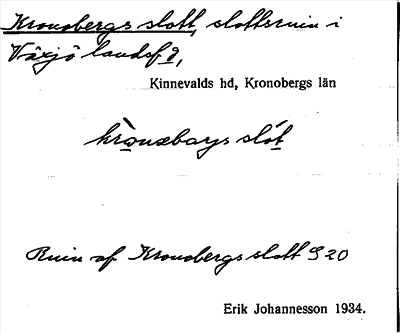 Kronobergs slott, slottsruin i
Växjö landsf d,
Kinnevalds hd, Kronobergs län
krònəbarys slót
Ruin af Kronobergs slott S 20
Erik Johannesson 1934.